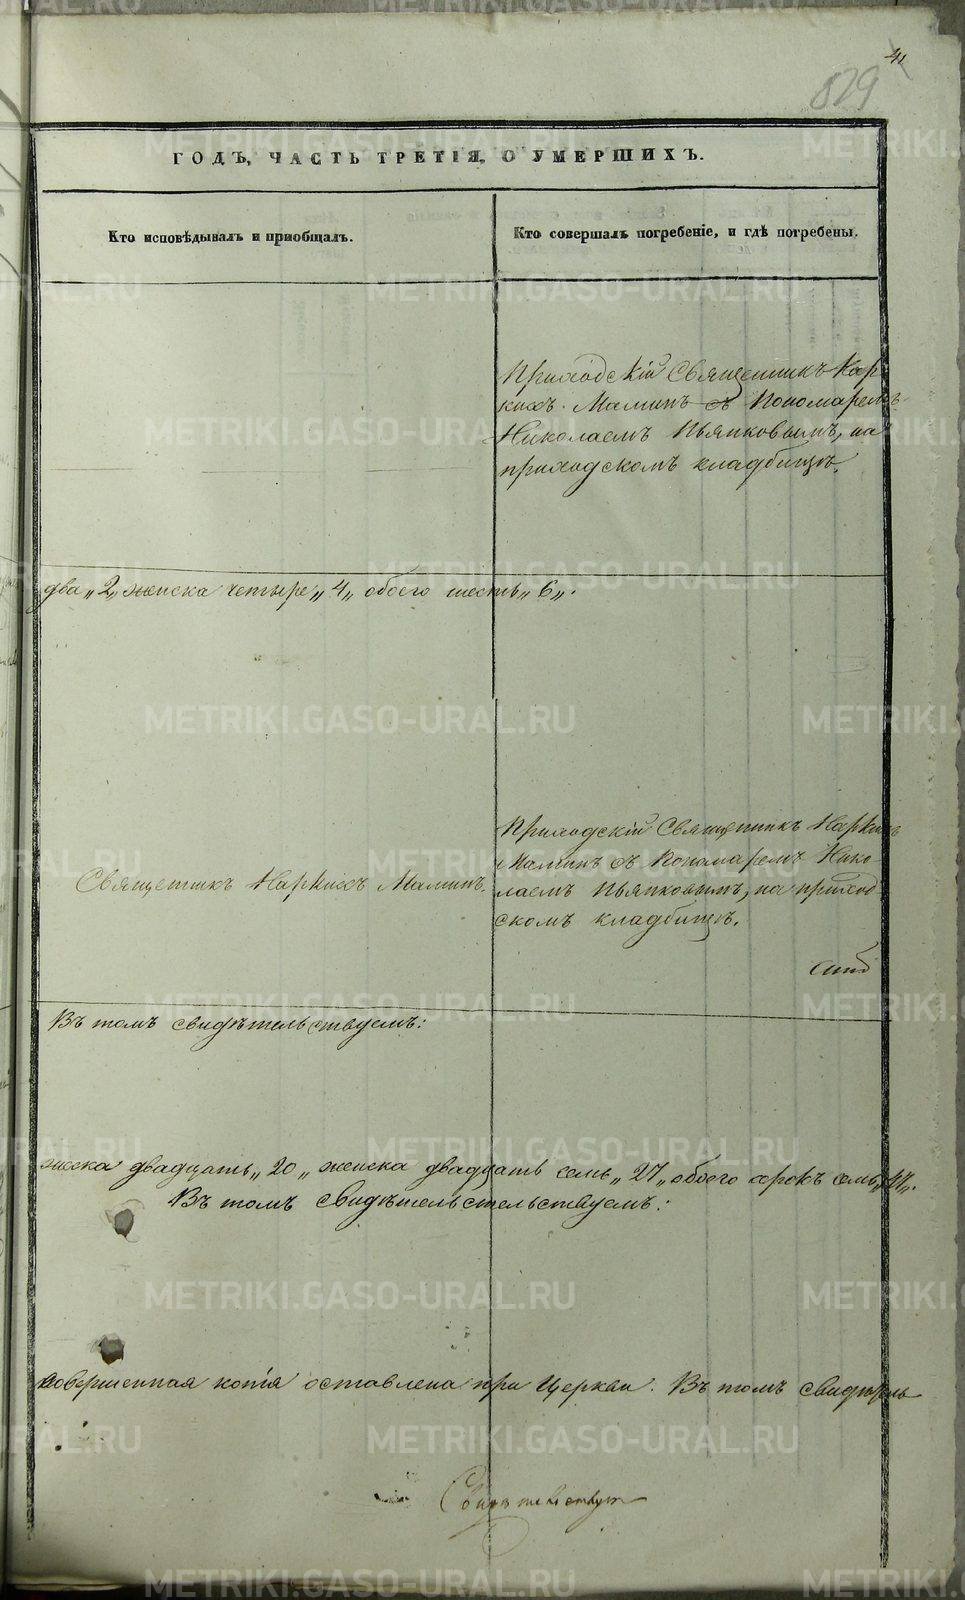 41
829
ГОДЪ, ЧАСТЬ ТРЕТІЯ, О УМЕРШИХЪ.
Кто исповѣдывалъ и пріобщалъ.
Кто совершалъ погребеніе, и гдѣ погребены.
Приходскій Священникъ Нар-
кихъ Маминъ съ Пономаремъ
Николаемъ Пьянковымъ, на
приходскомъ кладбищѣ.
два „2„ женска четыре „4„ обоего шесть „6„.
Священникъ Наркисъ Маминъ.
Приходскій Священникъ Наркисъ
Маминъ съ Пономаремъ Нико-
лаемъ Пьянковымъ, на приход-
скомъ кладбищѣ.
Въ томъ свидѣтельствуемъ:
жска двадцать „20„ женска двадцать семь „27„ обоего сорокъ семь „47„.
Въ томъ свидѣтельстельствуемъ:
совершенная копія оставлена при Церкви. Въ томъ свидѣтель
METRIKI.GASO-URAL.RU